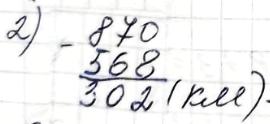 2) - 870
568
302 (км).